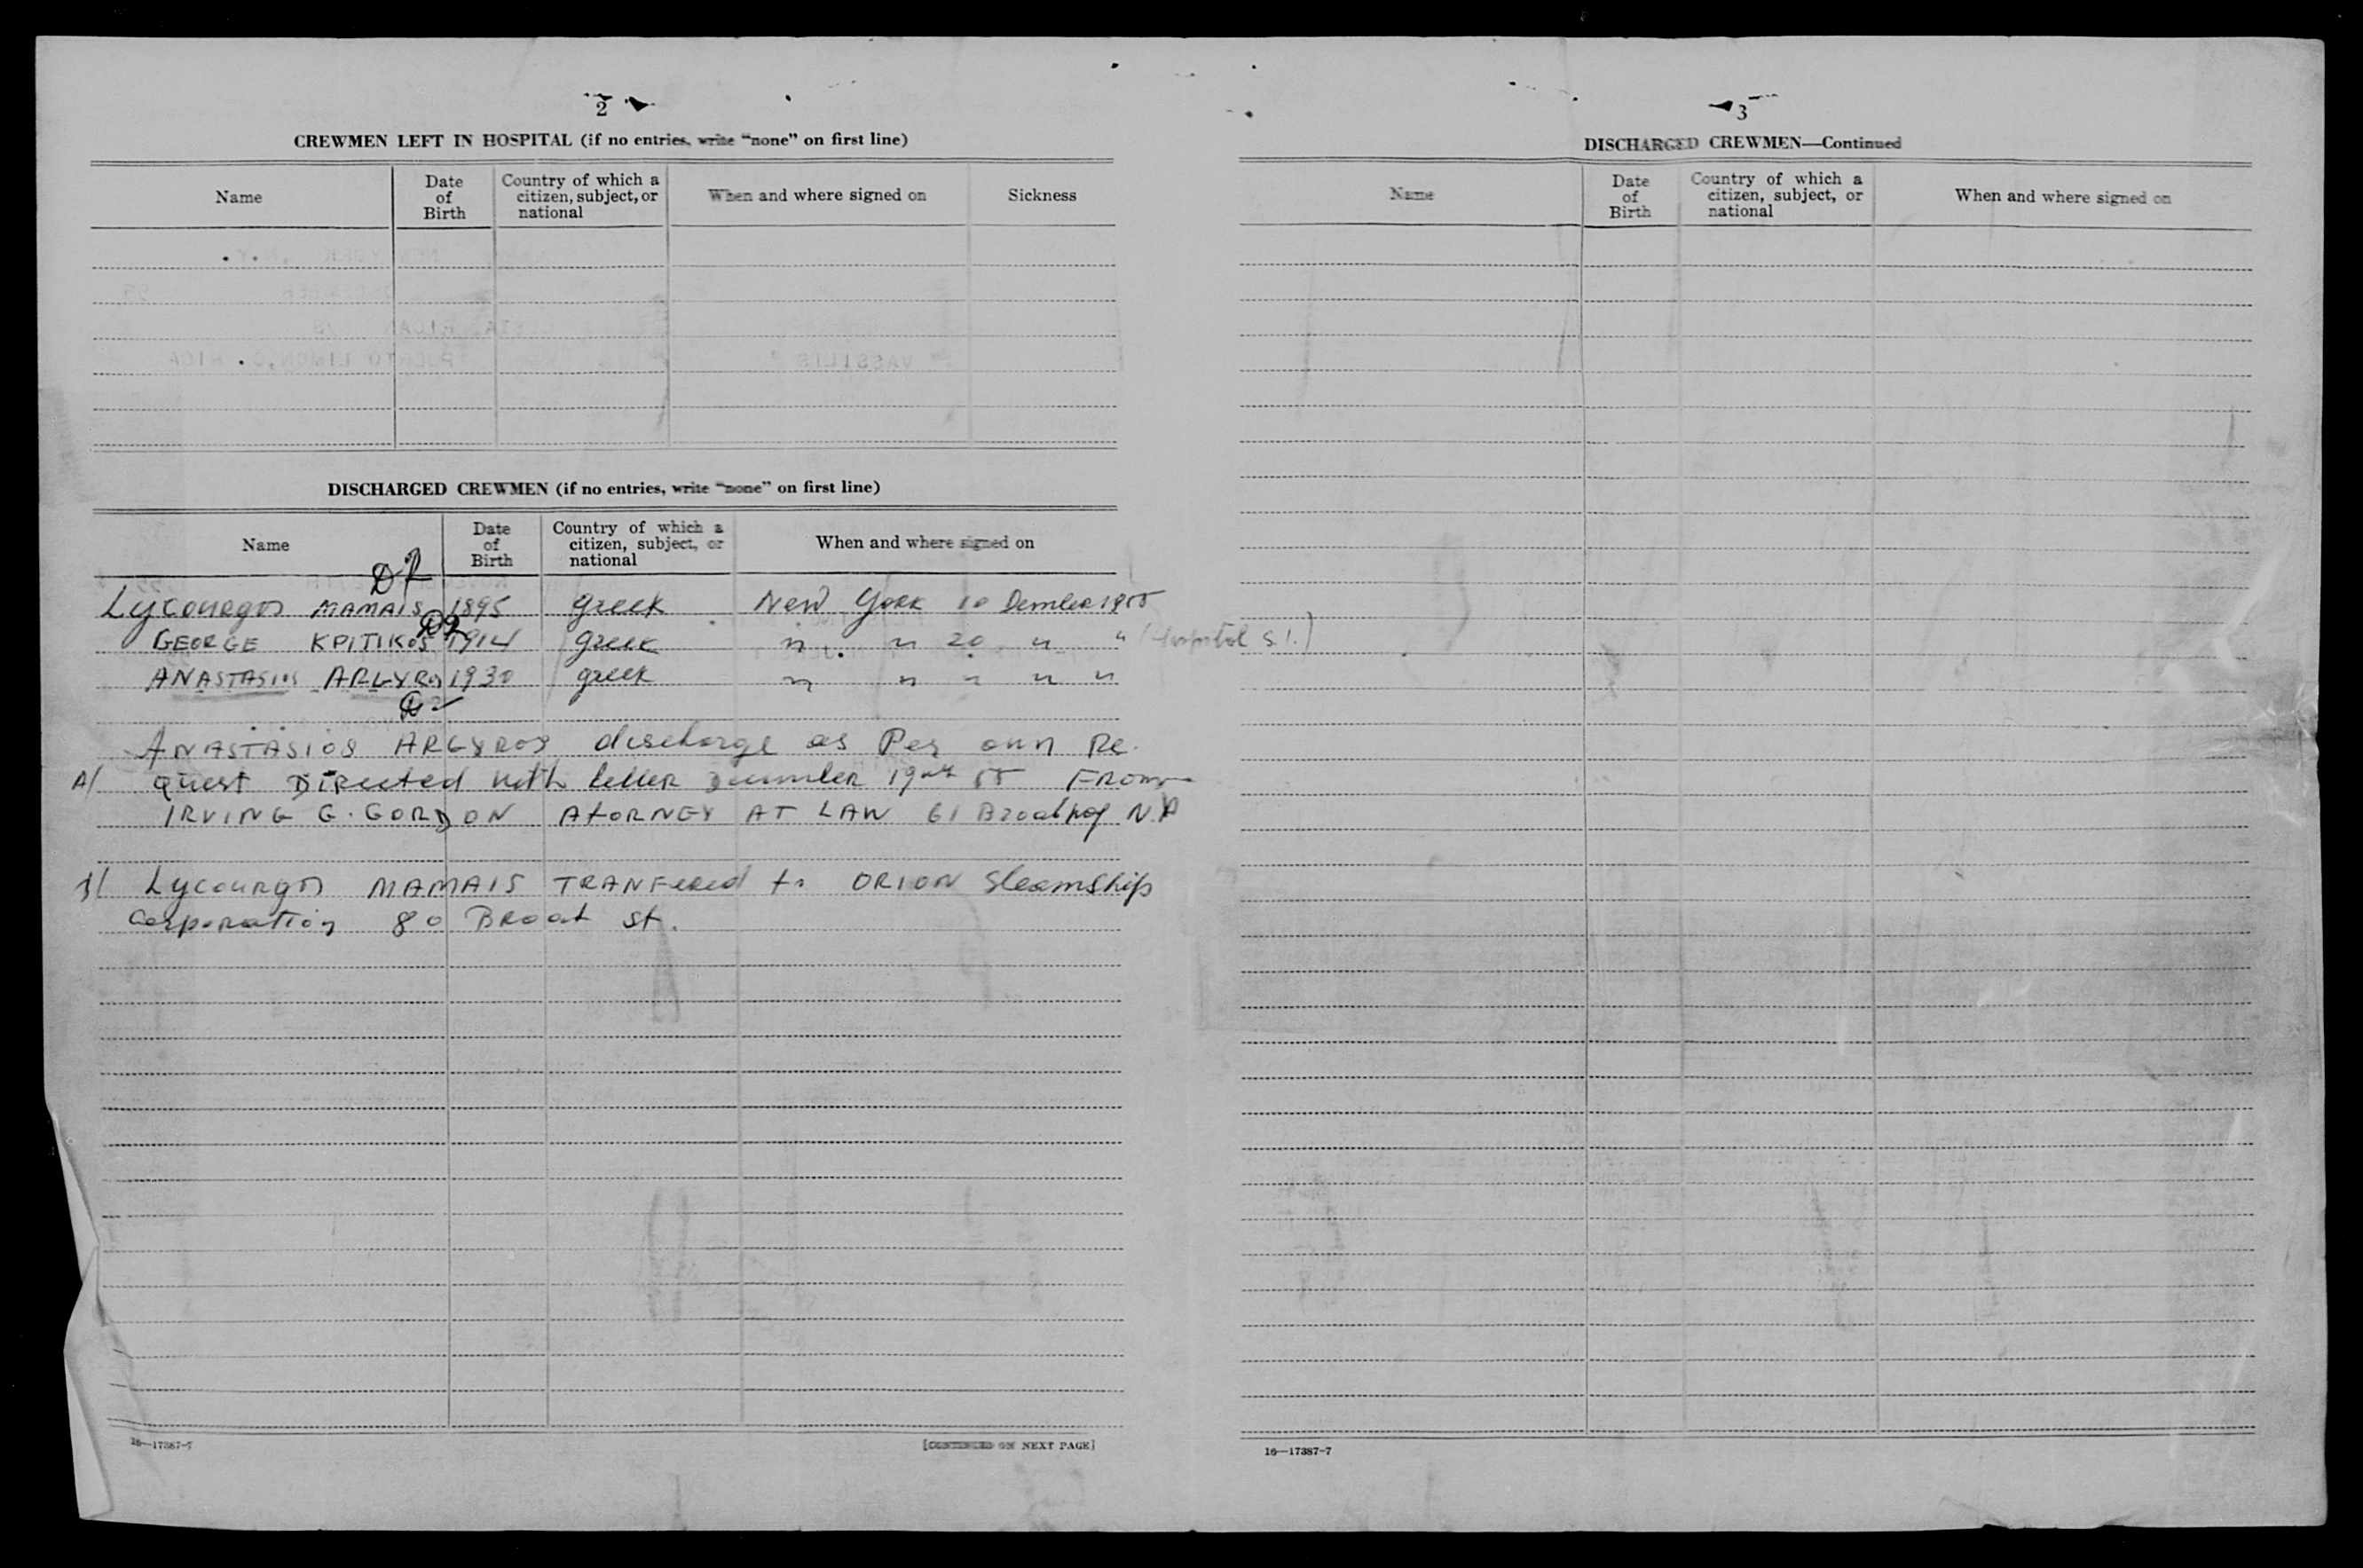 2
CREWMEN LEFT IN HOSPITAL (if no entries, write "none" on first line)
Name
Date of Birth
Country of which a citizen, subject, or national
When and where signed on
Sickness
DISCHARGED CREWMEN (if no entries, write "none" on first line)
Name
Date of Birth
Country of which a citizen, subject, or national
When and where signed on
Lycourgos MAMAIS 1895 greek New York 10 Dember 1955
GEORGE KPITIKOS 1914 greek " " 20 " " (Hospital S.I.)
ANASTASIOS ARGYROS 1930 greek " " " " "
ANASTASIOS ARGYROS discharge as Per own Re.
A/ quest Directed with letter 19 55 FROM
IRVING G. GORDON AtORNEY AT LAW 61 N.Y
Lycourgos MAMAIS TRANFERED to ORION Steamship
Corporation 80 BROAT St.
16—17387-7
[CONTINUED ON NEXT PAGE]
3
DISCHARGED CREWMEN—Continued
Name
Date of Birth
Country of which a citizen, subject, or national
When and where signed on
16—17387-7